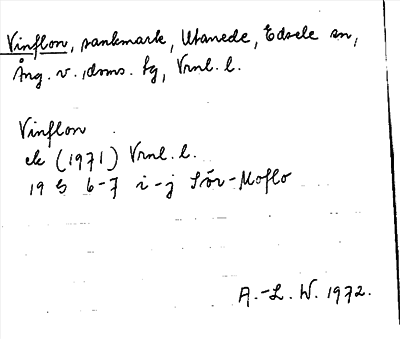 Vinflon, sankmark, Utanede, Edsele sn,
Ång. v. doms. fg, Vrnl. l.
Vinflon
ek (1971) Vrnl. l.
19 G 6-7 i-j Sör-Moflo
A.-L. W. 1972.